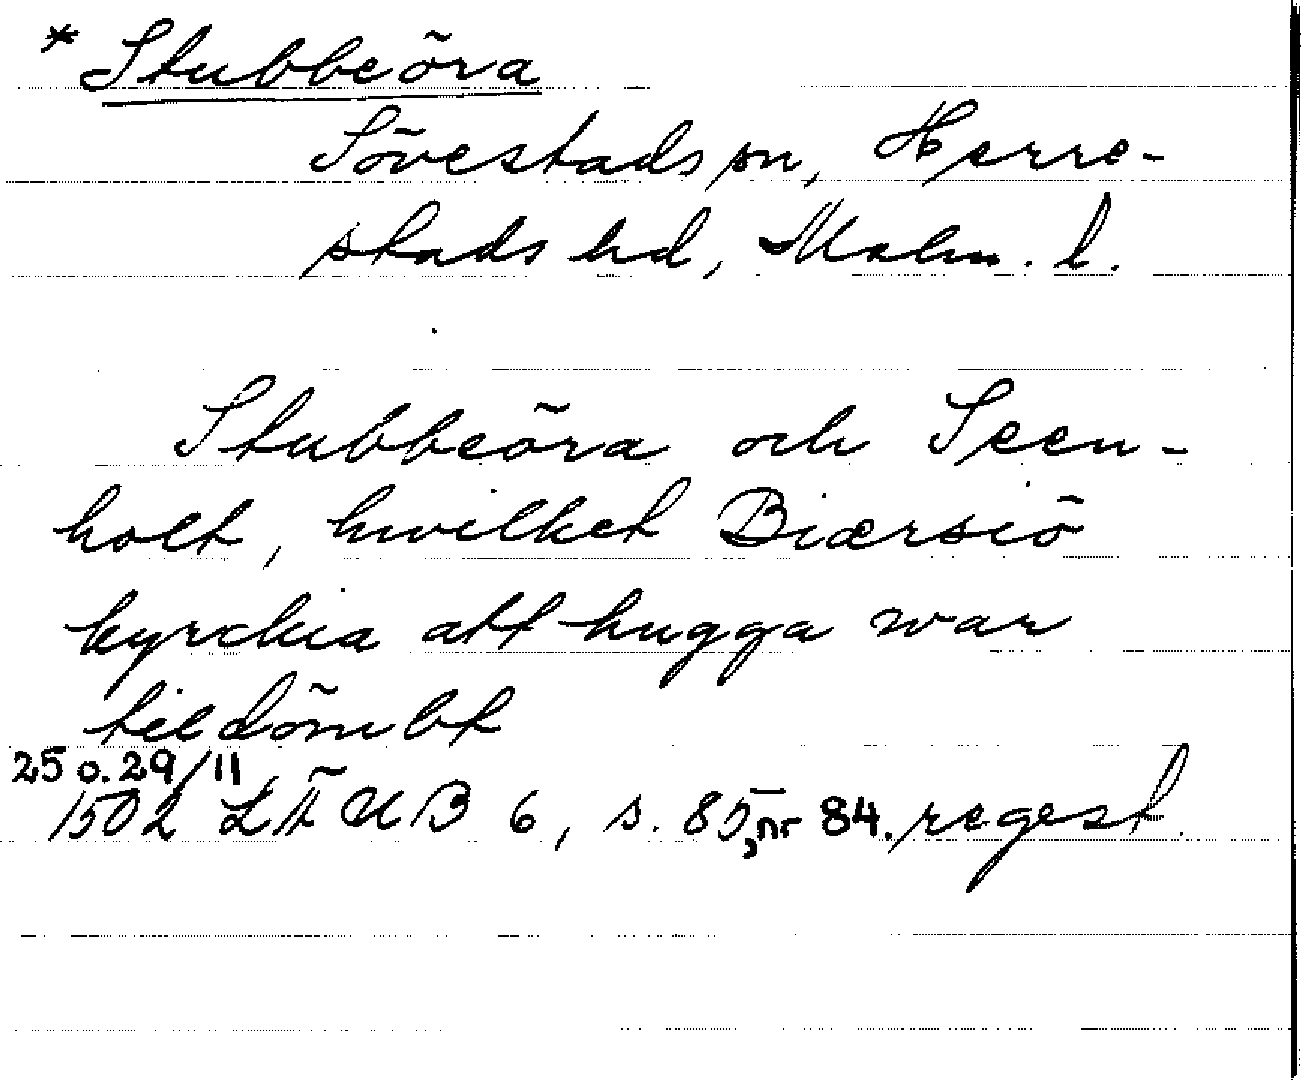 * Stubbeöra
Sövestads sn, Herre-
stads hd, Malm. l.
Stubbeöra och Seen-
holt, hwilket Biærsiö
kyrckia att hugga war
tildömbt
25 o. 29/11
1502 LÄUB 6, s. 85, nr 84. regest.